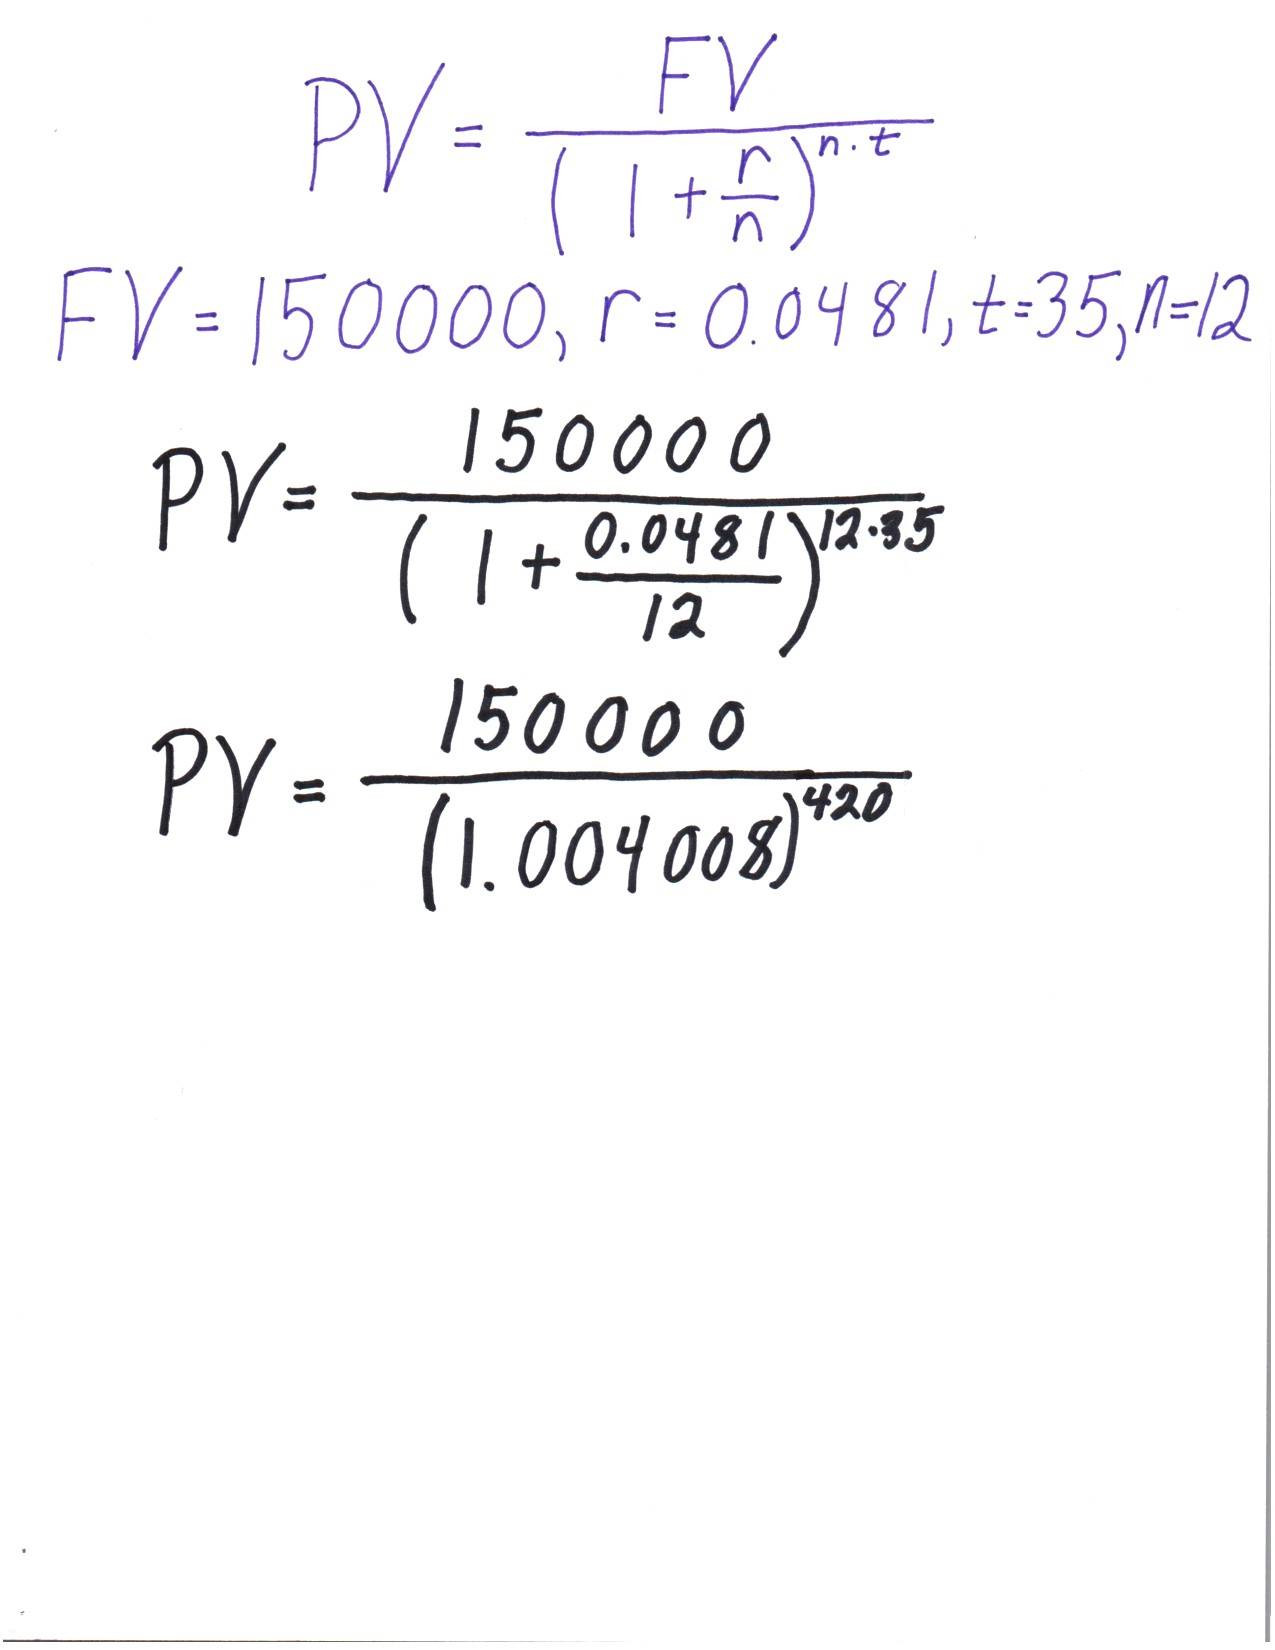 PV = FV / (1 + r/n)^n·t
FV = 150000, r = 0.0481, t=35, n=12
PV = 150000 / (1 + 0.0481/12)^12·35
PV = 150000 / (1.004008)^420